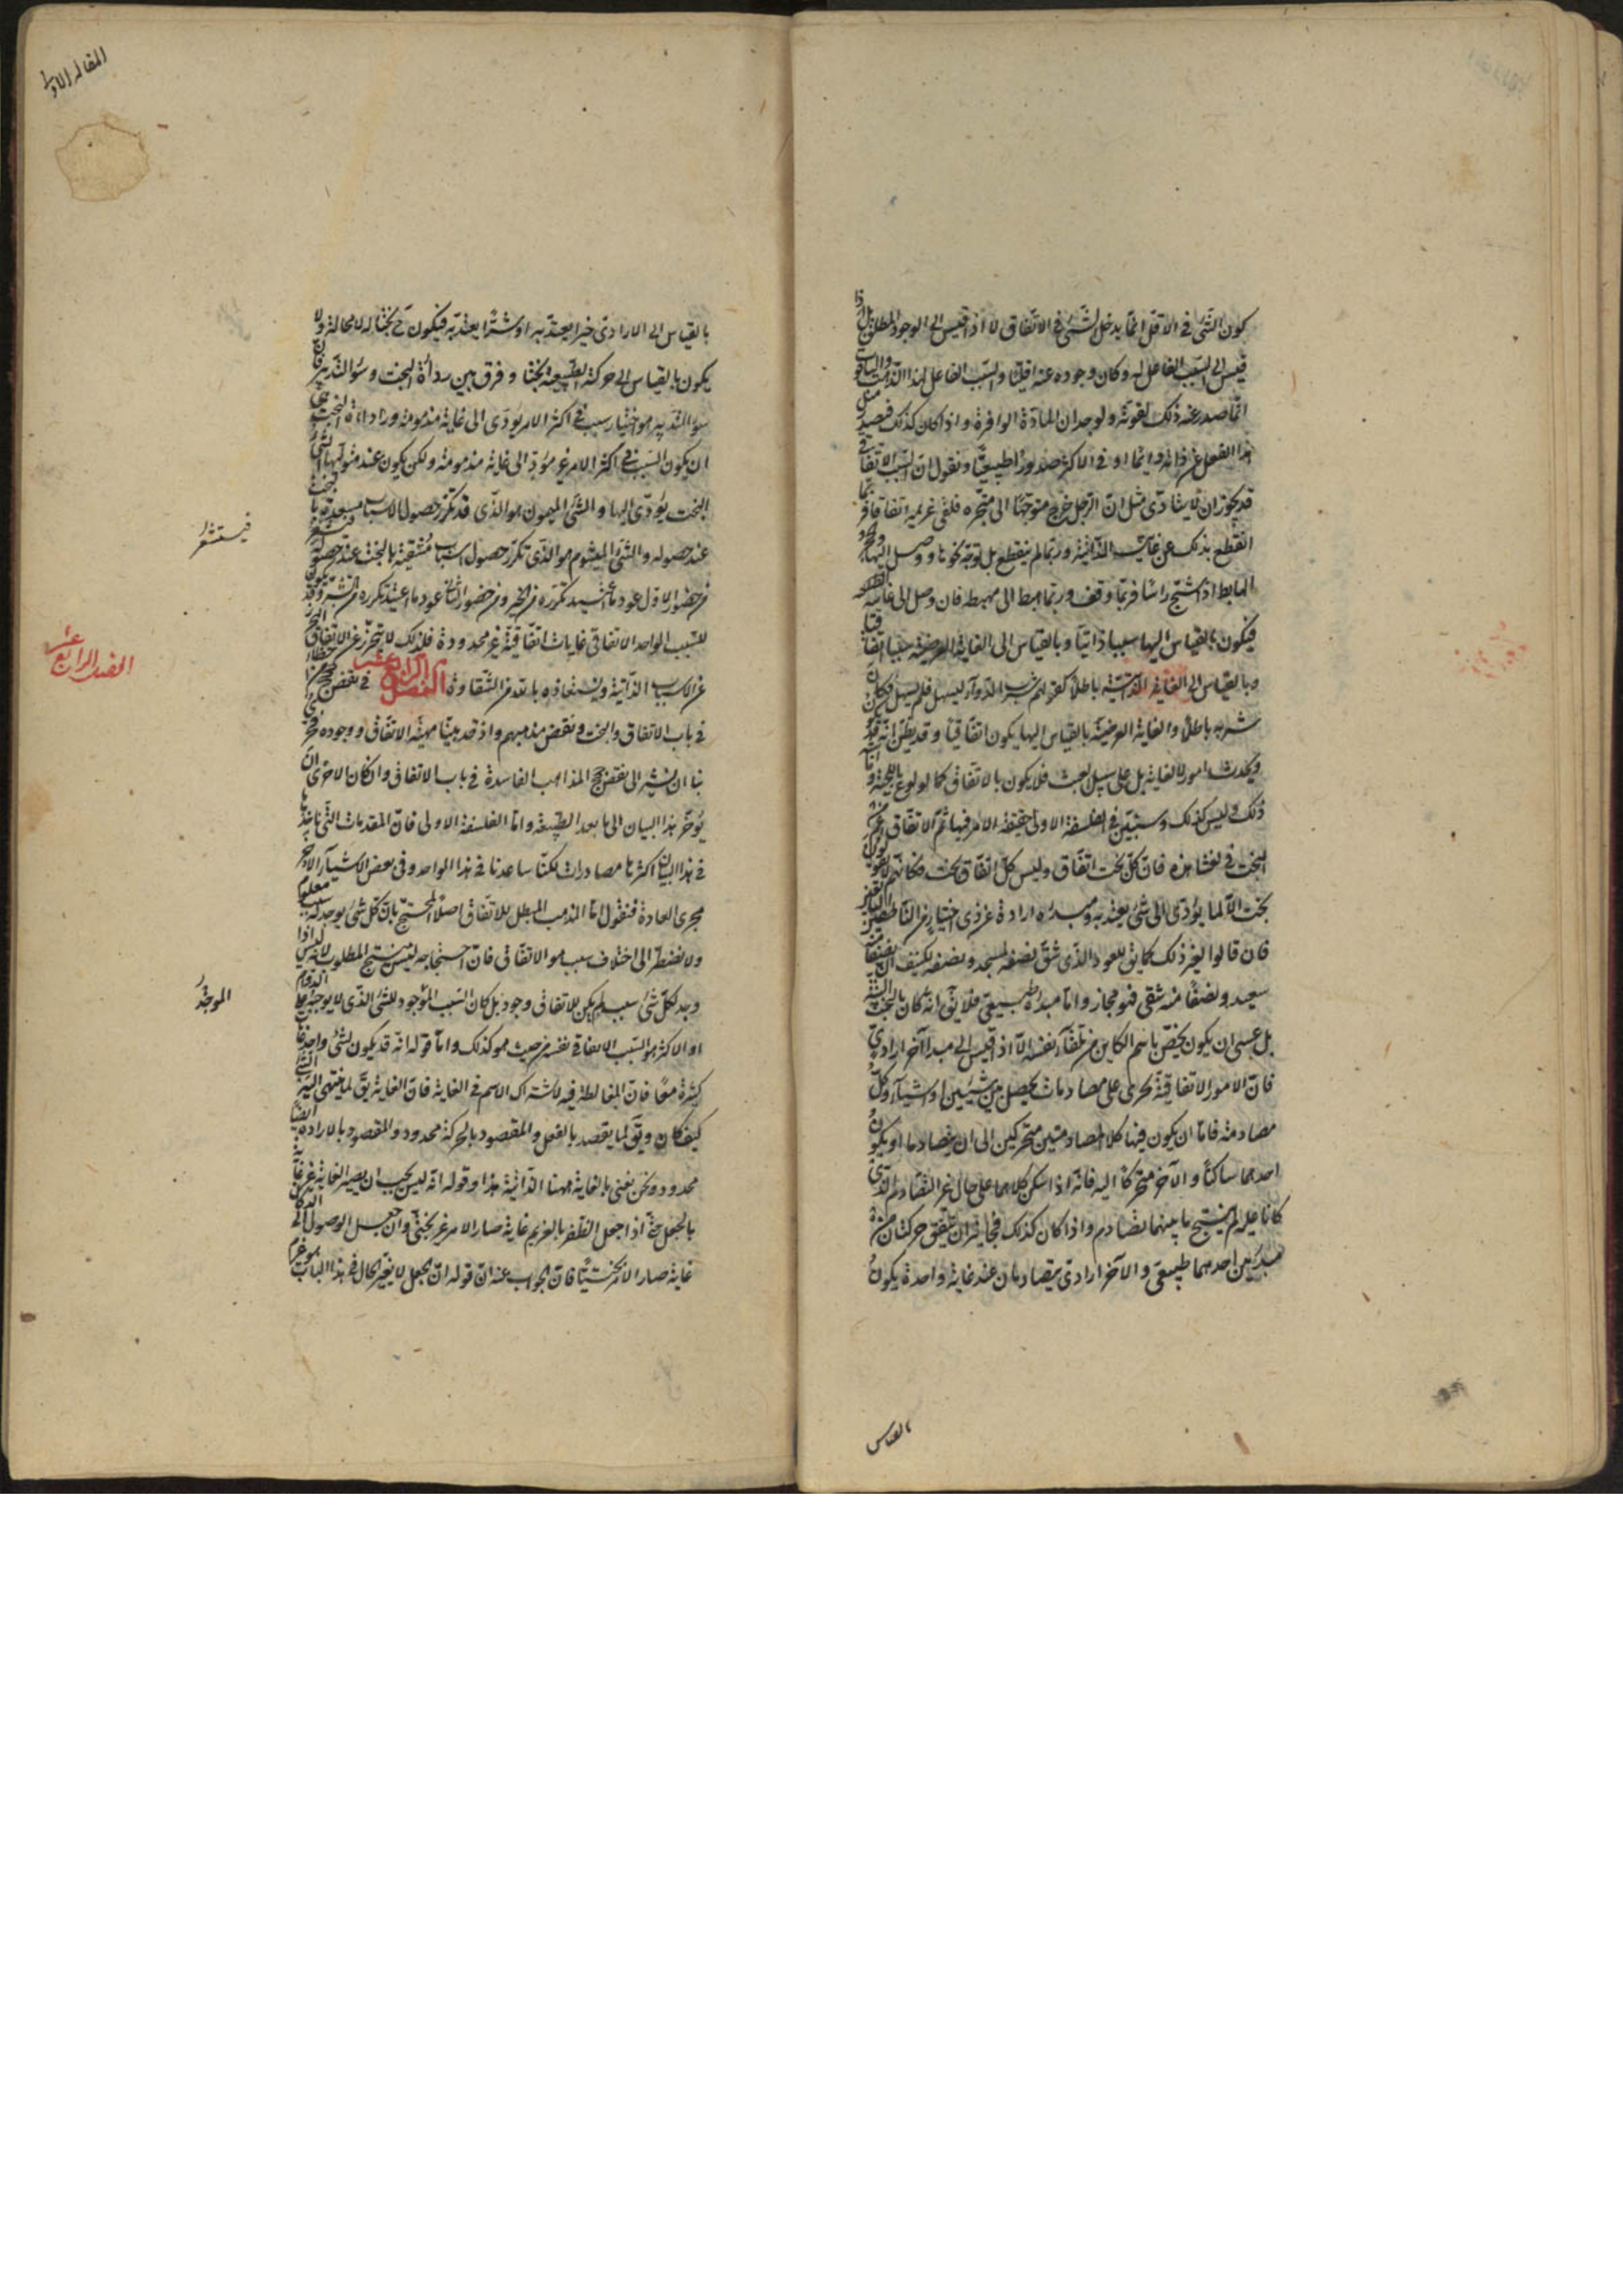 كون الشئ فى الاقل انما يدخل الشئ فى الاتفاق لا اذا قيس الى الوجود المطلق بل اذا
قيس الى السبب الفاعل له وكان وجوده عنه اقليا والسبب الفاعل لهذا
انما صدر عنه ذلك لقوته ولوجدان المادة الوافرة واذا كان كذلك فيصدر مثل
هذا الفعل عن ذاته دائما او فى الاكثر صدورا طبيعيا ونقول ان السبب الاتفاقى
قد يجوز ان لا يتادى مثل ان الرجل خرج متوجها الى متجره فلقى غريمه اتفاقا فربما
انقطع بذلك عن غايته الذاتية وربما لم ينقطع بل توجه نحوها ووصل اليها والحجر
الهابط اذا شج راسا فربما وقف وربما هبط الى مهبطه فان وصل الى غايته
فيكون بالقياس اليها سببا ذاتيا وبالقياس الى الغاية العرضية سببا اتفاقيا
وبالقياس الى الغاية الذاتية باطلا كقولهم شرب الدواء ليسهل فلم يسهل فكان
شربه باطلا والغاية العرضية بالقياس اليها يكون اتفاقيا وقد يظن انه قد
ويحدث امور لا لغاية بل على سبيل العبث فلا يكون بالاتفاق كالولوع باللحية و
ذلك وليس كذلك وسنبين فى الفلسفة الاولى حقيقة الامر فيها ثم الاتفاق اعم من
البخت فى لغتنا هذه فان كل بخت اتفاق وليس كل اتفاق بخت فكانهم لا يقولون
بخت الا لما يؤدى الى شئ يعتد به ومبدئه ارادة عن ذى اختيار من الناطقين
فان قالوا لغير ذلك كما يق للعود الذى شق نصفه لمسجد ونصفه لكنيف ان نصفا منه
سعيد ونصفا منه شقى فهو مجاز واما مبدؤه طبيعى فلا يق انه كان بالبخت
بل عسى ان يكون يخص باسم الكاين من تلقاء نفسه الا اذا قيس الى مبدأ آخر ارادى
فان الامور الاتفاقية تجرى على مصادمات يحصل بين شيئين او اشياء وكل
مصادمة فاما ان يكون فيها كلا المصادمين متحركين الى ان يتصادما او يكون
احدهما ساكنا والآخر متحركا اليه فانه اذا سكن كلاهما على حال غير التصادم الذى
كانا عليه لم ينتج ما بينهما تصادم واذا كان كذلك فجايز ان يتفق حركتان من
مبدئين احدهما طبيعى والآخر ارادى يتصادمان عند غاية واحدة يكون
بالقياس
المقالة الاولى
بالقياس الى الارادى خيرا يعتد به او شرا يعتد به فيكون ح بختا له لا محالة ولا
يكون بالقياس الى حركة الطبيعية بختا وفرق بين رداءة البخت وسوء التدبير فان
سوء التدبير هو اختيار سبب فى اكثر الامر يؤدى الى غاية مذمومة ورداءة البخت هى
ان يكون السبب فى اكثر الامر غير مؤد الى غاية مذمومة ولكن يكون عند متوليها السئ
البخت يؤدى اليها والشئ الميمون هو الذى قد تكرر حصول اسباب مسعدة بالبخت
عند حصوله والشئ الميشوم هو الذى تكرر حصول اسباب مشقية بالبخت عند حصوله فيستشعر
فيستشعر
من حضور الاول عود ما اعتيد تكرره من الخير ومن حضور الثانى عود ما اعتيد تكرره من الشر وقد يكون
للسبب الواحد الاتفاقى غايات اتفاقية غير محدودة فلذلك لا يتحرز عن الاتفاق التحرز
عن الاسباب الذاتية ويستعاذ بالله من الشقاوة الفصل الرابع عشر فى نقض حجج من اخطا
الفصل الرابع عشر
فى باب الاتفاق والبخت ونقض مذهبهم واذ قد بينا مهية الاتفاق ووجوده فحرى
بنا ان نشير الى نقض حجج المذاهب الفاسدة فى باب الاتفاق وان كان الاحرى ان
يؤخر هذا البيان الى ما بعد الطبيعة واما الفلسفة الاولى فان المقدمات التى ناخذها
فى هذا البيان اكثرها مصادرات لكنا ساعدنا فى هذا الواحد وفى بعض الاشياء الاخر
مجرى العادة فنقول اما المذهب المبطل للاتفاق اصلا المحتج بان كل شئ يوجد له سبب معلوم
ولا نضطر الى اختلاف سبب هو الاتفاق فان احتجاجه ليس منتج المطلوب لانه ليس اذا
وجد لكل شئ سبب لم يكن للاتفاق وجود بل كان السبب الموجود للشئ الذى لا يوجبه على الدوام
الموجدُ
او الاكثر هو السبب الاتفاقى نفسه من حيث هو كذلك واما قوله انه قد يكون لشئ واحد غايات
كثيرة معا فان المغالطة فيه لاشتراك الاسم فى الغاية فان الغاية يق لما ينتهى اليه الشئ
كيف كان ويق لما يقصد بالفعل والمقصود بالحركة محدود والمقصود بالارادة ايضا
محدود ونحن نعنى بالغاية ههنا الذاتية هذا وقوله انه ليس يجب ان يصير الغاية غير غاية
بالجعل حتى اذا جعل الظفر بالغريم غاية صار الامر غير بختى وان جعل الوصول الى الدكان
غاية صار الامر بختيا فان الجواب عنه ان قوله ان الجعل لا يغير الحال فى هذا الباب